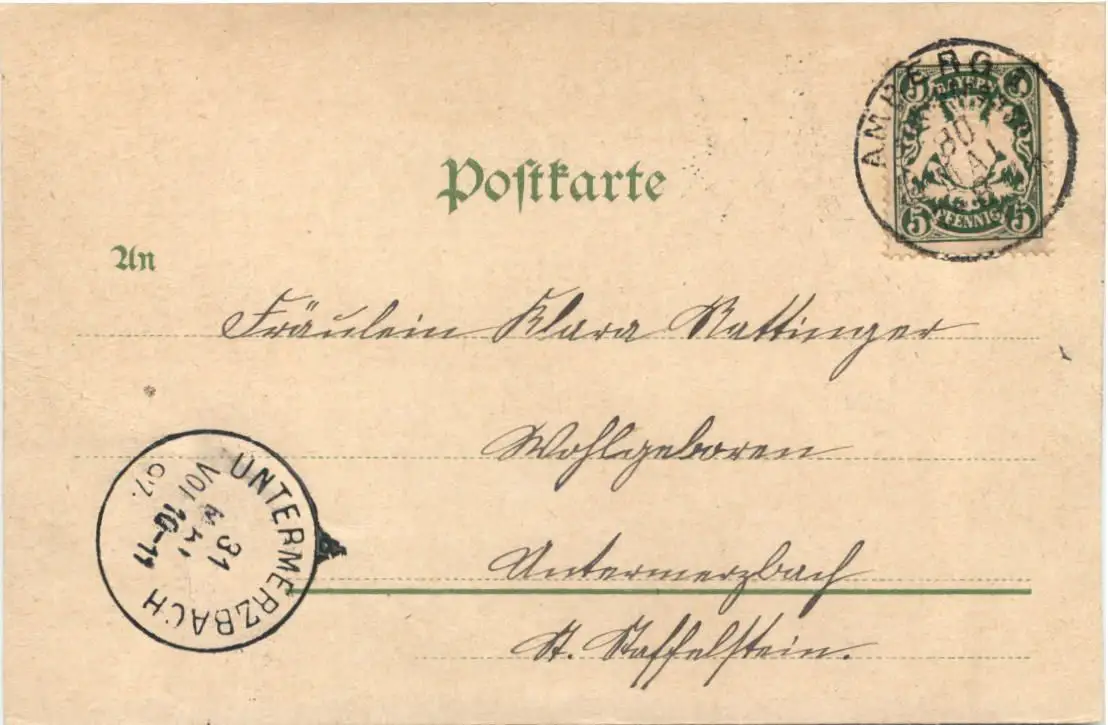 AMBERG
BAYERN
30
MAI
5 PFENNIG 5
Postkarte
An
Fräulein Klara Rattinger
Wohlgeboren
Untermerzbach
St. Staffelstein.
UNTERMERZBACH
31
MAI
VOR 10-11